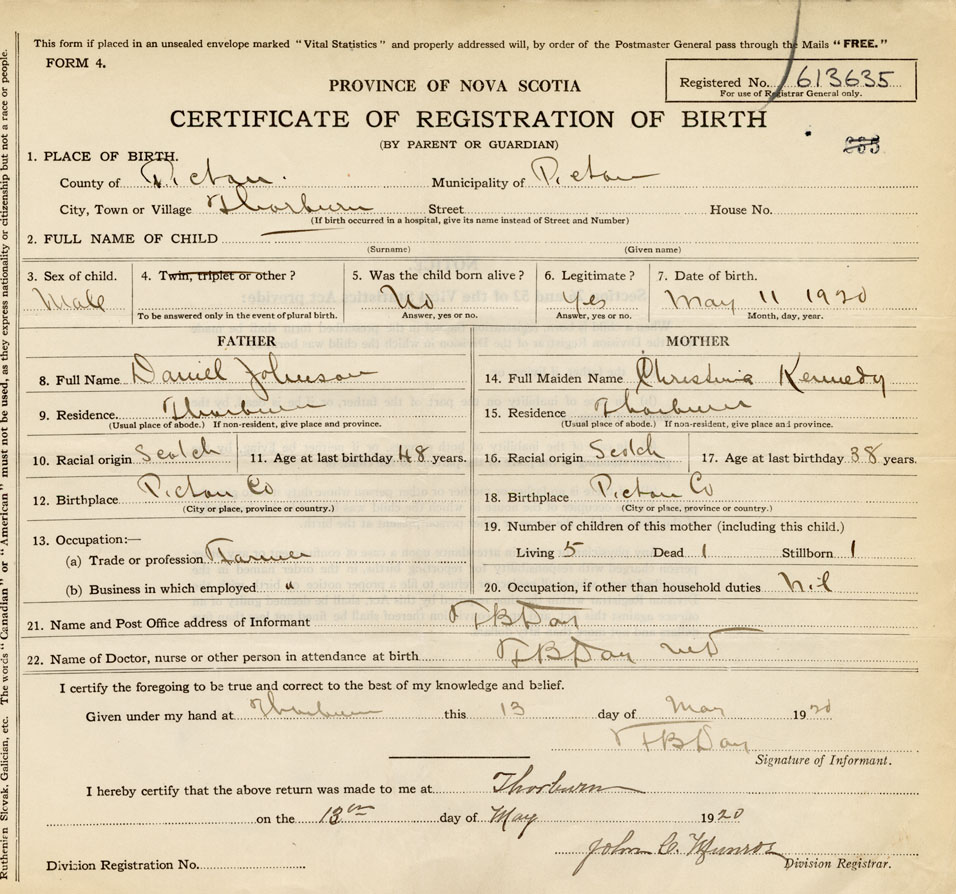 This form if placed in an unsealed envelope marked "Vital Statistics" and properly addressed will, by order of the Postmaster General pass through the Mails "FREE."
FORM 4.
Registered No. 613635
For use of Registrar General only.
PROVINCE OF NOVA SCOTIA
CERTIFICATE OF REGISTRATION OF BIRTH
(BY PARENT OR GUARDIAN)
1. PLACE OF BIRTH.
County of Pictou. Municipality of Pictou
City, Town or Village Thorburn Street House No.
(If birth occurred in a hospital, give its name instead of Street and Number)
2. FULL NAME OF CHILD
(Surname) (Given name)
3. Sex of child. 4. Twin, triplet or other? 5. Was the child born alive? 6. Legitimate? 7. Date of birth.
Male No Yes May 11 1920
To be answered only in the event of plural birth. Answer, yes or no. Answer, yes or no. Month, day, year.
FATHER
8. Full Name Daniel Johnson
9. Residence. Thorburn
(Usual place of abode.) If non-resident, give place and province.
10. Racial origin Scotch 11. Age at last birthday 48 years.
12. Birthplace Pictou Co
(City or place, province or country.)
13. Occupation:—
(a) Trade or profession Farmer
(b) Business in which employed "
MOTHER
14. Full Maiden Name Christina Kennedy
15. Residence Thorburn
(Usual place of abode.) If non-resident, give place and province.
16. Racial origin Scotch 17. Age at last birthday 38 years.
18. Birthplace Pictou Co
(City or place, province or country.)
19. Number of children of this mother (including this child.)
Living 5 Dead 1 Stillborn 1
20. Occupation, if other than household duties Nil
21. Name and Post Office address of Informant FB Day
22. Name of Doctor, nurse or other person in attendance at birth FB Day MD
I certify the foregoing to be true and correct to the best of my knowledge and belief.
Given under my hand at Thorburn this 13 day of May 1920
FB Day
Signature of Informant.
I hereby certify that the above return was made to me at Thorburn
on the 13th day of May 1920
John C. Munroe
Division Registration No. Division Registrar.
Ruthenian Slovak, Galician, etc. The words "Canadian" or "American" must not be used, as they express nationality or citizenship but not a race or people.